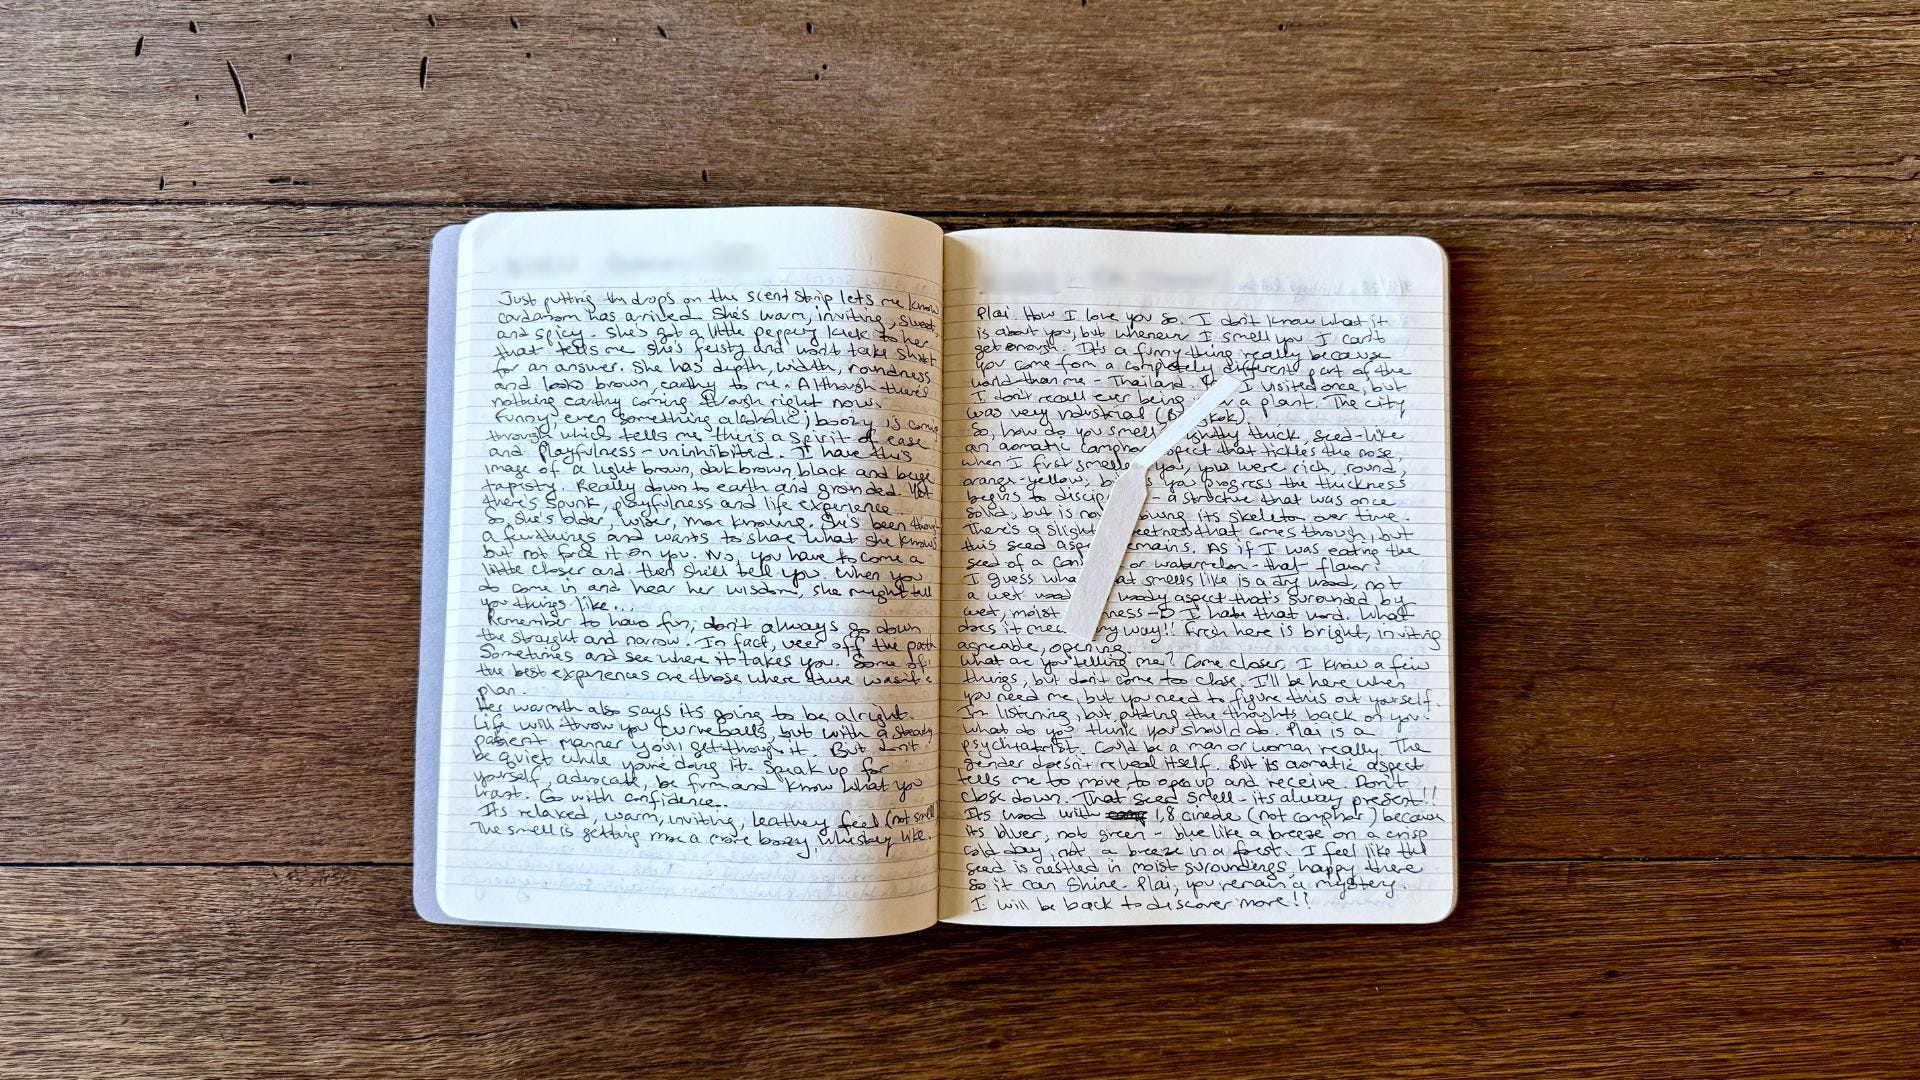 Just putting the drops on the scent strip lets me know
cardamom has arrived. She's warm, inviting, sweet,
and spicy. She's got a little peppery kick to her
that tells me she's feisty and won't take
for an answer. She has depth, width, roundness
and looks brown, earthy to me. Although there's
nothing earthy coming through right now.
Funny, even something alcoholic; boozy is coming
through which tells me there's a spirit of ease
and playfulness - uninhibited. I have this
image of a light brown, dark brown, black and beige
tapisty. Really down to earth and grounded. Yet
there's spunk, playfulness and life experience.
So, she's older, wiser, more knowing. She's been through
a few things and wants to share what she knows
but not force it on you. No, you have to come a
little closer and then she'll tell you. When you
do come in and hear her wisdom, she might tell
you things like...
Remember to have fun; don't always go down
the straight and narrow. In fact, veer off the path
sometimes and see where it takes you. Some of
the best experiences are those where there wasn't a
plan.
Her warmth also says its going to be alright.
Life will throw you curveballs, but with a steady
patient manner you'll get through it. But don't
be quiet while you're doing it. Speak up for
yourself, advocate, be firm and know what you
want. Go with confidence..
Its relaxed, warm, inviting, leathery feel (not smell
The smell is getting more a more boozy, whiskey like.
Plai. How I love you so. I don't know what it
is about you, but whenever I smell you I can't
get enough. It's a funny thing really because
you come from a completely different part of the
world than me - Thailand. I visited once, but
I don't recall ever being a plant. The city
was very industrial (Bangkok).
So, how do you smell? Slightly thick, seed-like
an aromatic camphor aspect that tickles the nose.
When I first smelled you, you were rich, round,
orange-yellow, but as you progress the thickness
begins to - a structure that was once
solid, but is now its skeleton over time.
There's a slight sweetness that comes through, but
this seed aspect remains. As if I was eating the
seed of a or watermelon - that flavor?
I guess what that smells like is a dry wood, not
a wet woody aspect that's surounded by
wet, moist I hate that word. What
does it mean anyway!! Fresh here is bright, inviting
agreeable, opening.
What are you telling me? Come closer, I know a few
things, but don't come to close. I'll be here when
you need me, but you need to figure this out yourself.
I'm listening, but putting the thoughts back on you.
What do you think you should do. Plai is a
psychiatrist. Could be a man or woman really. The
gender doesn't reveal itself. But its aromatic aspect
tells me to move to open up and receive. Don't
close down. That seed smell - its always present!!
Its wood with 1,8 cineole (not camphor) because
its bluer, not green - blue like a breeze on a crisp
cold day, not a breeze in a forest. I feel like the
seed is nestled in moist suroundings, happy there
so it can shine. Plai, you remain a mystery.
I will be back to discover more!!